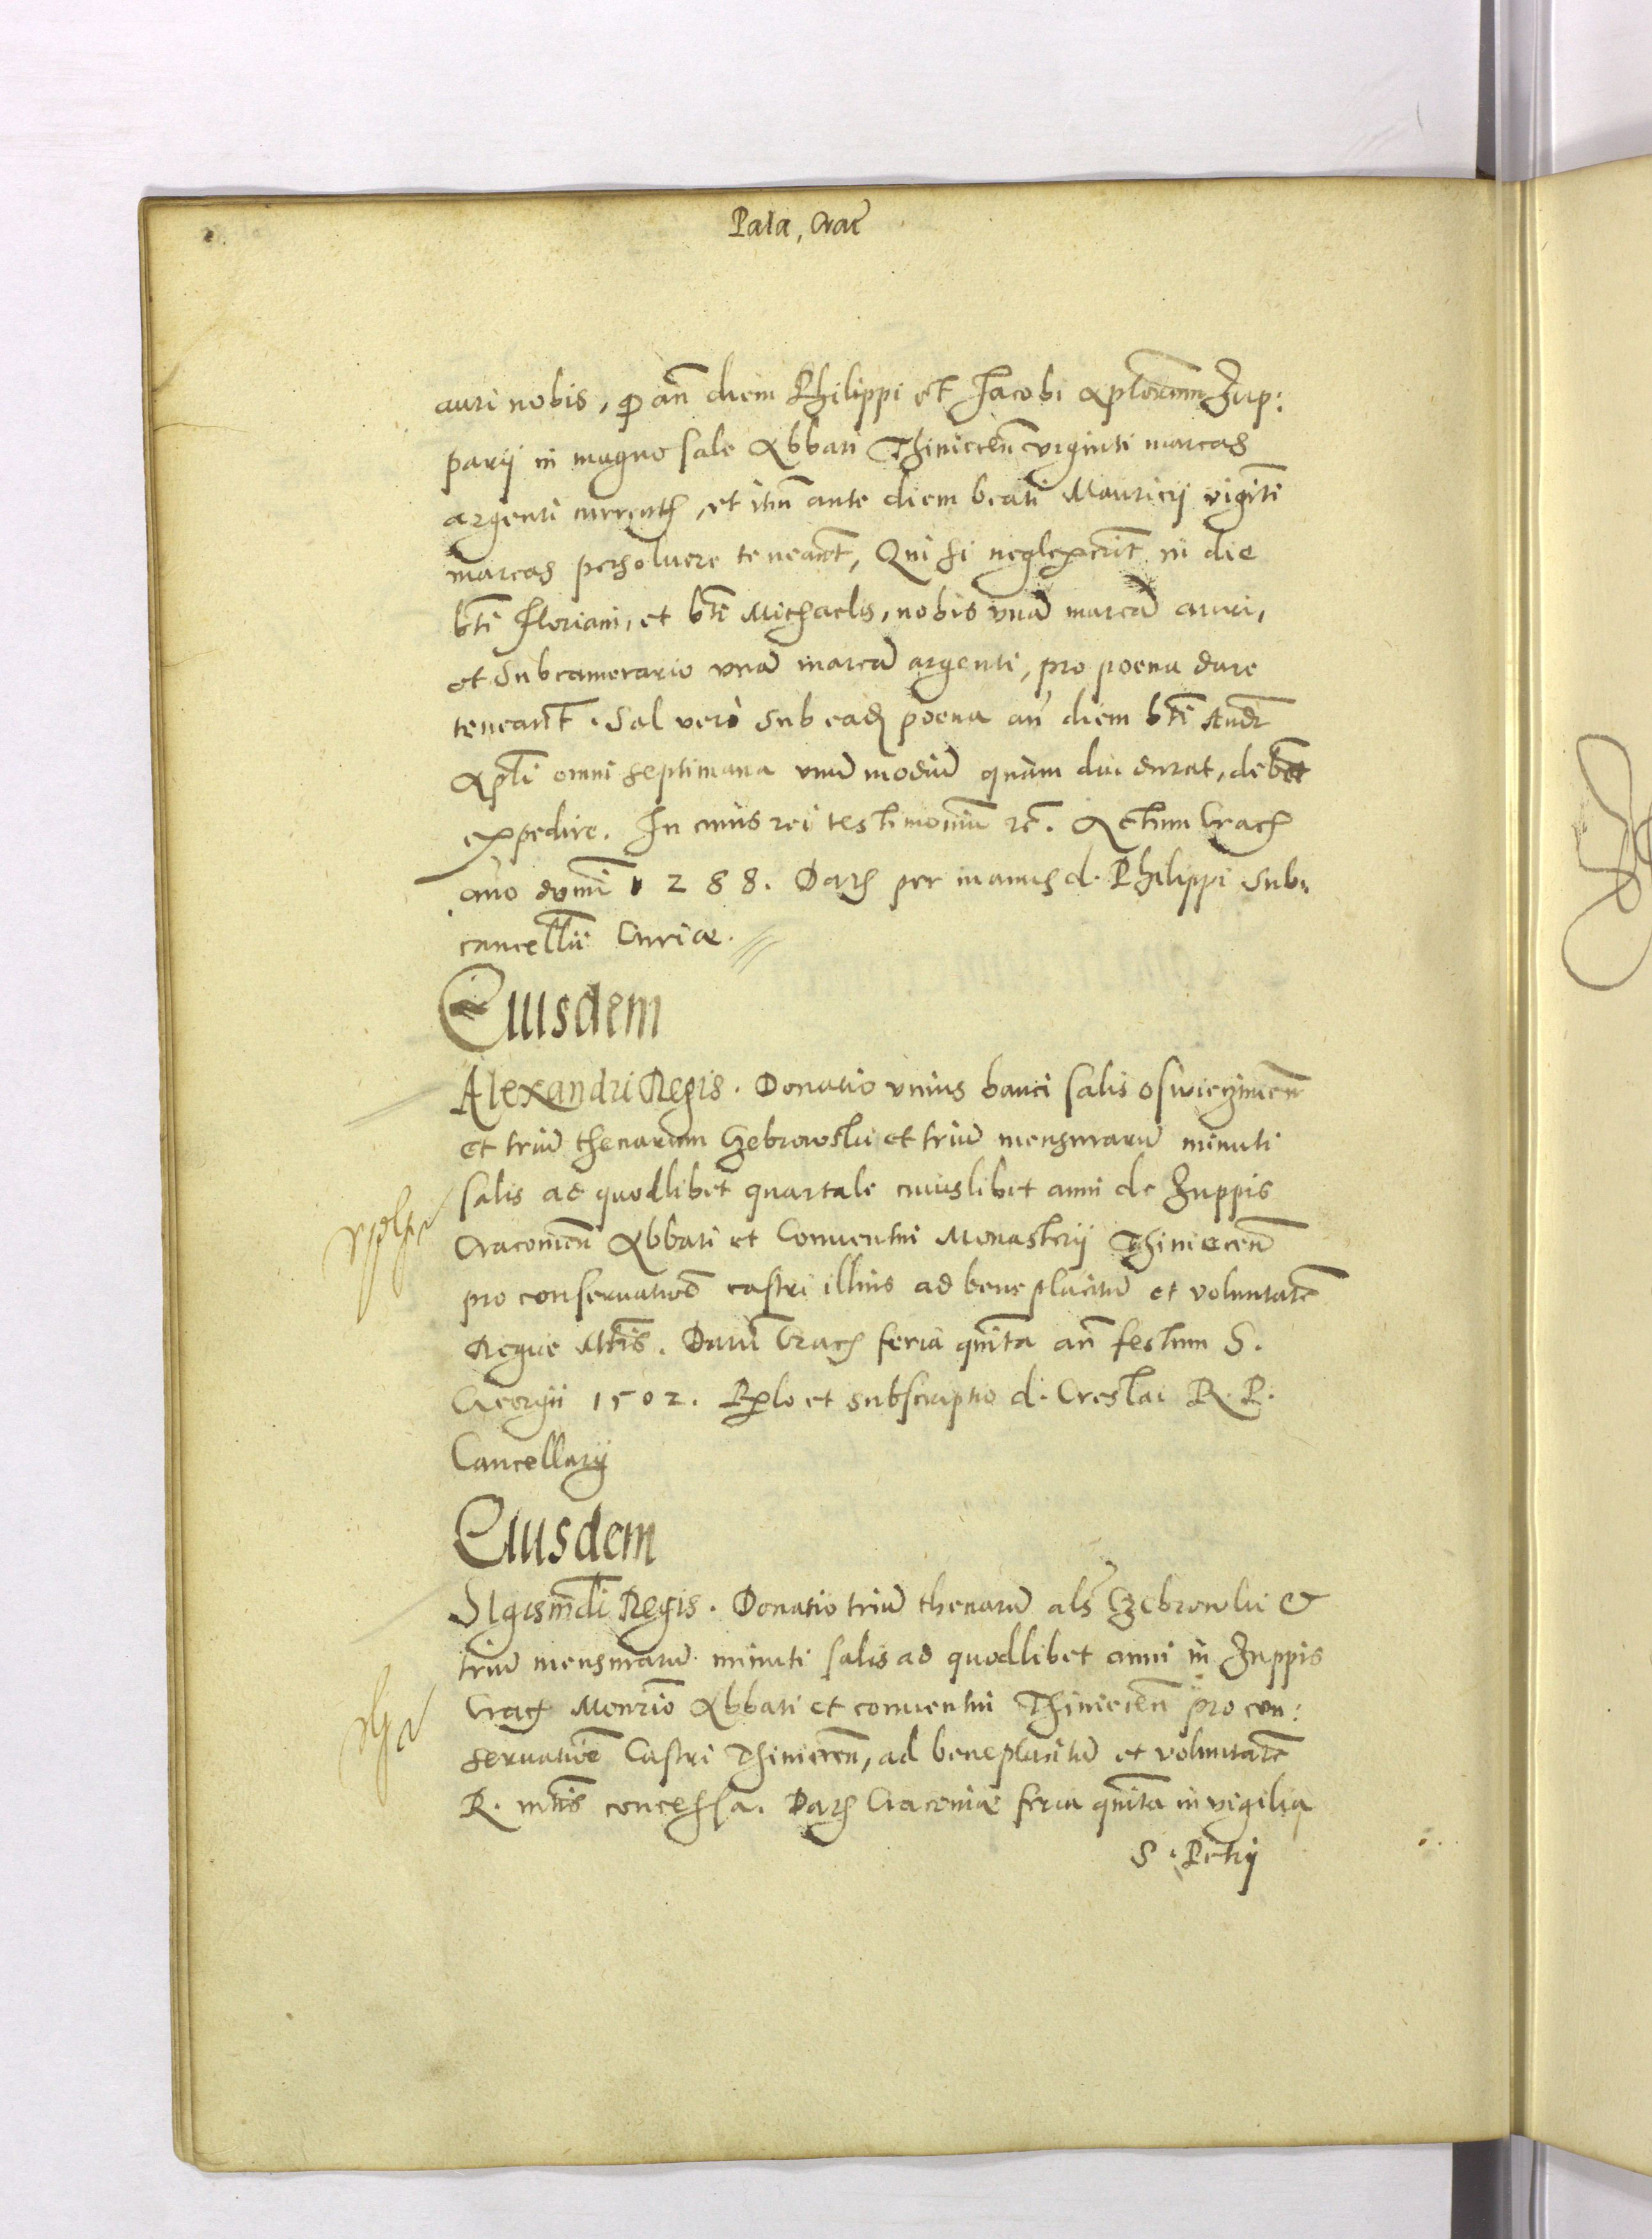 Pala, Crac̄
auri nobis, ꝙ an̄ diem Philippi et Jacobi Apl̄orum Zup:
parij in magno sale Abbati Thiniecen̄ viginti marcas
argenti currentꝭ, et itm̄ ante diem beati Mauricij vigīti
marcas persoluere teneant̄, Qui si neglexerīt in die
bt̄i Floriani, et bt̄i Michaelis, nobis vnā marcā auri,
et Subcamerario vnā marcā argenti, pro poena dare
teneant̄. Sal verò sub eadꝫ poena an̄ diem bt̄i Andr̄
Apl̄i omni septimana vnū modiū quàm diu durat, debet
expedire. In cuius rei testimoniū rc̄. Actum Cracꝭ
ān̄o domī 1288. Datꝭ per manus d. Philippi Sub:
cancell̄ii Curiae.
Eiusdem
Alexandri Regis. Donatio vnius banci salis Oswieczimen̄
et triū thenarum Czebrowski et triū mensurarū minuti
salis ad quodlibet quartale cuiuslibet anni de Zuppis
Cracouien̄ Abbati et Conuentui Monasterij Thiniecen̄
pro conseruatioē castri illius ad beneplacitū et voluntatē
Regiae Mt̄is. Datū Cracꝭ feria quīta an̄ festum S.
Georgii 1502. Rꝑlo et subscriptio d. Creslai R. P.
Cancellarij
Eiusdem
Sigism̄di Regis. Donatio triū thenarū als̄ Czebrowski &
triū mensurarū minuti salis ad quodlibet anni in Zuppis
Cracꝭ Monrīo Abbati et conuentui Thiniecen̄ pro con:
seruatiōe Castri Thiniecen̄, ad beneplacitū et voluntatē
R. mt̄is concessa. Datꝭ Cracouiae feria quīta in vigilia
S. Petrij